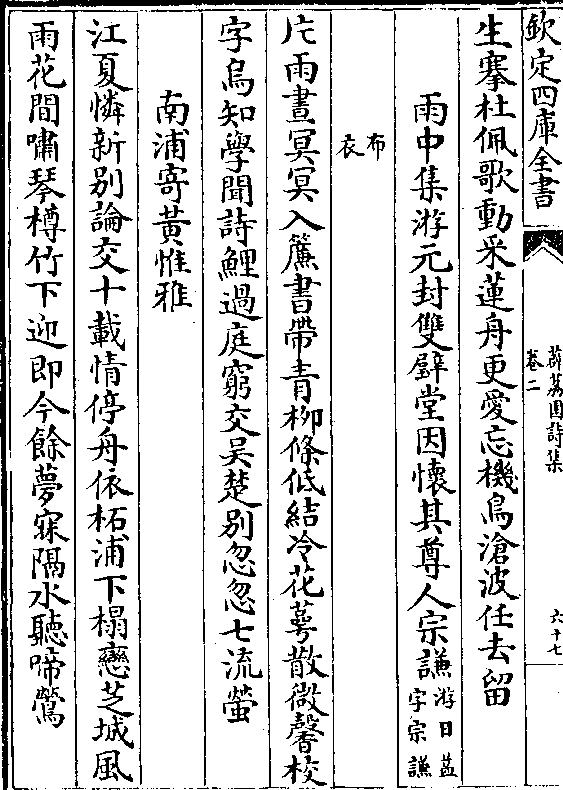 欽定四庫全書
薜荔園詩集
卷二
六十七
生搴杜佩歌動采蓮舟更愛忘機鳥滄波任去留
雨中集游元封雙璧堂因懷其尊人宗謙游日益
字宗謙
布
衣
片雨晝冥冥入簾書帶青柳條低結冷花萼散微馨校
字烏知學聞詩鯉過庭窮交吳楚別忽忽七流螢
南浦寄黃惟雅
江夏憐新別論交十載情停舟依柘浦下榻戀芝城風
雨花間嘯琴樽竹下迎即今餘夢寐隔水聽啼鶯